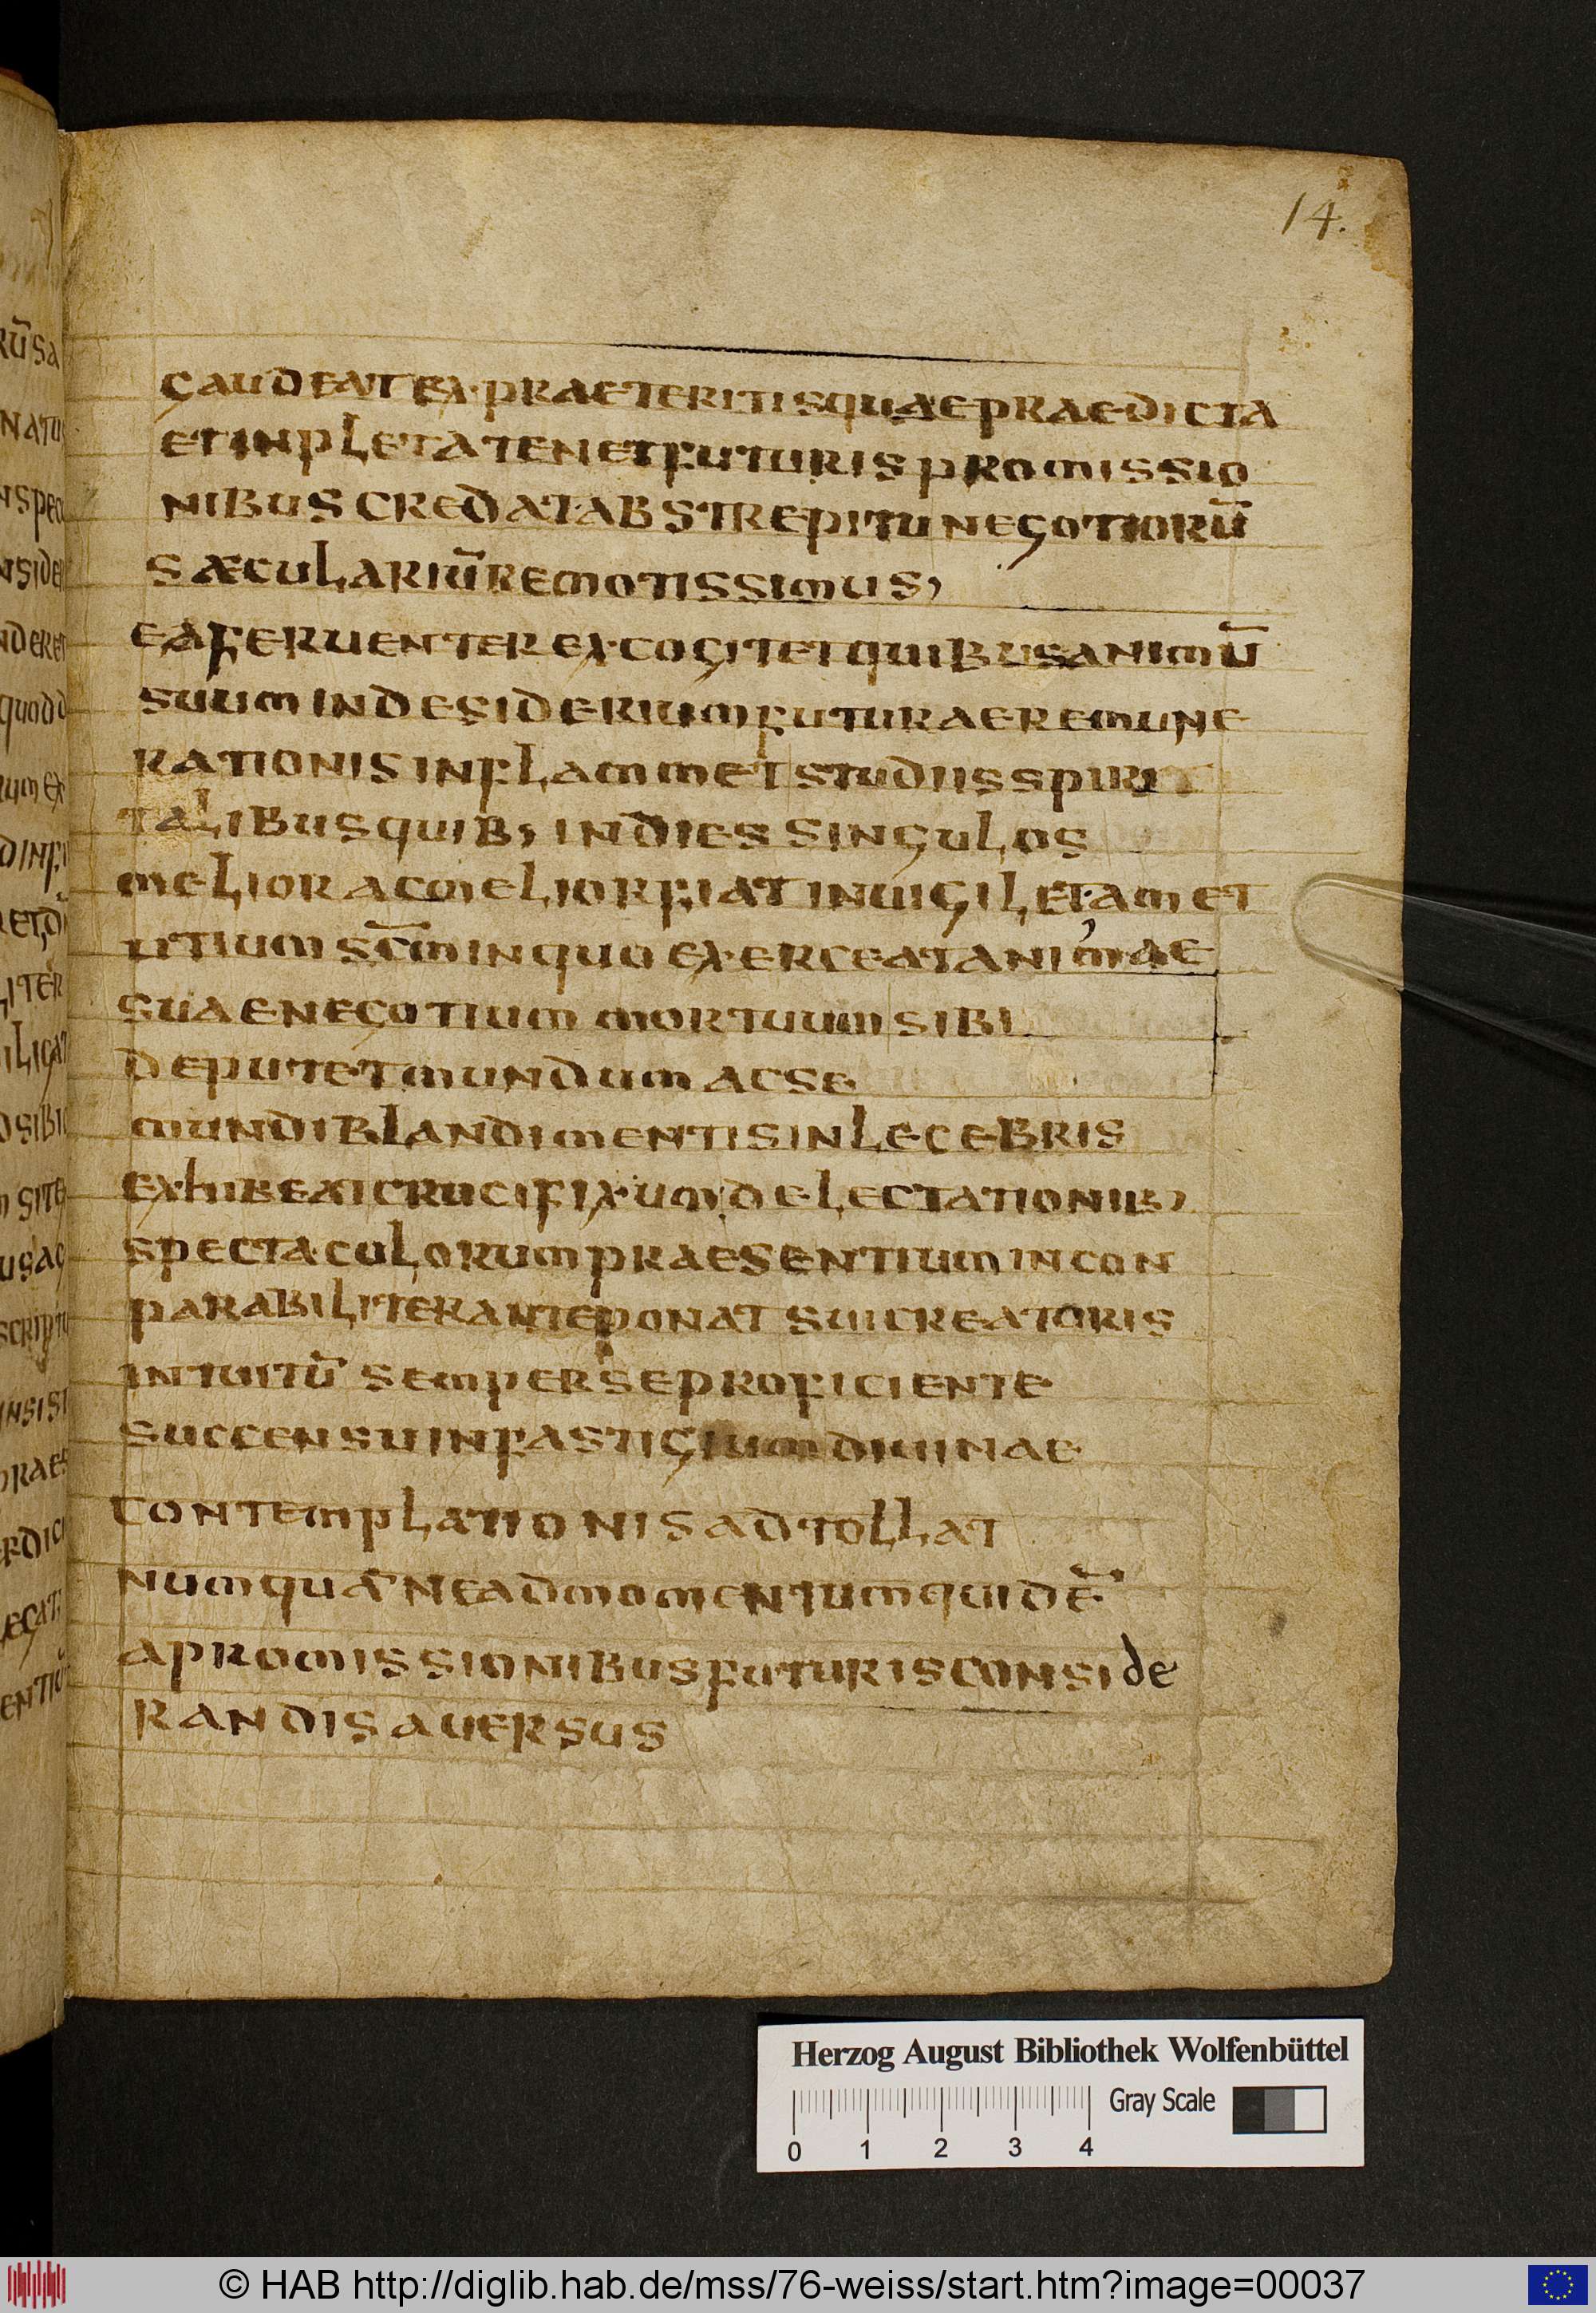 14.
GAUDEAT EX PRAETERITIS QUAE PRAEDICTA
ET INPLETA TENET FUTURIS PROMISSIO
NIBUS CREDAT AB STREPITU NEGOTIORŪ
SÆCULARIŪ REMOTISSIMUS,
EA FERUENTER EXCOGITET QUIBUS ANIMŪ
SUUM IN DESIDERIUM FUTURAE REMUNE
RATIONIS INFLAMMET STUDIIS SPIRI
TALIBUS QUIB, IN DIES SINGULOS
MELIOR AC MELIOR FIAT INUIGILET AMET
UTIUM SC̄M IN QUO EXERCEAT ANIMAE
SUAE NEGOTIUM MORTUUM SIBI
DEPUTET MUNDUM AC SE
MUNDI BLANDIMENTIS INLECEBRIS
EXHIBEAT CRUCIFIXUM DELECTATIONIB,
SPECTACULORUM PRAESENTIUM INCON
PARABILITER ANTEPONAT SUI CREATORIS
INTUITŪ SEMPER SE PROFICIENTE
SUCCENSU IN FASTIGIUM DIUINAE
CONTEMPLATIONIS ADTOLLAT
NUMQUĀ NE AD MOMENTUM QUIDĒ
A PROMISSIONIBUS FUTURIS CONSIDE
RANDIS AUERSUS
Herzog August Bibliothek Wolfenbüttel
Gray Scale
0 1 2 3 4
© HAB http://diglib.hab.de/mss/76-weiss/start.htm?image=00037